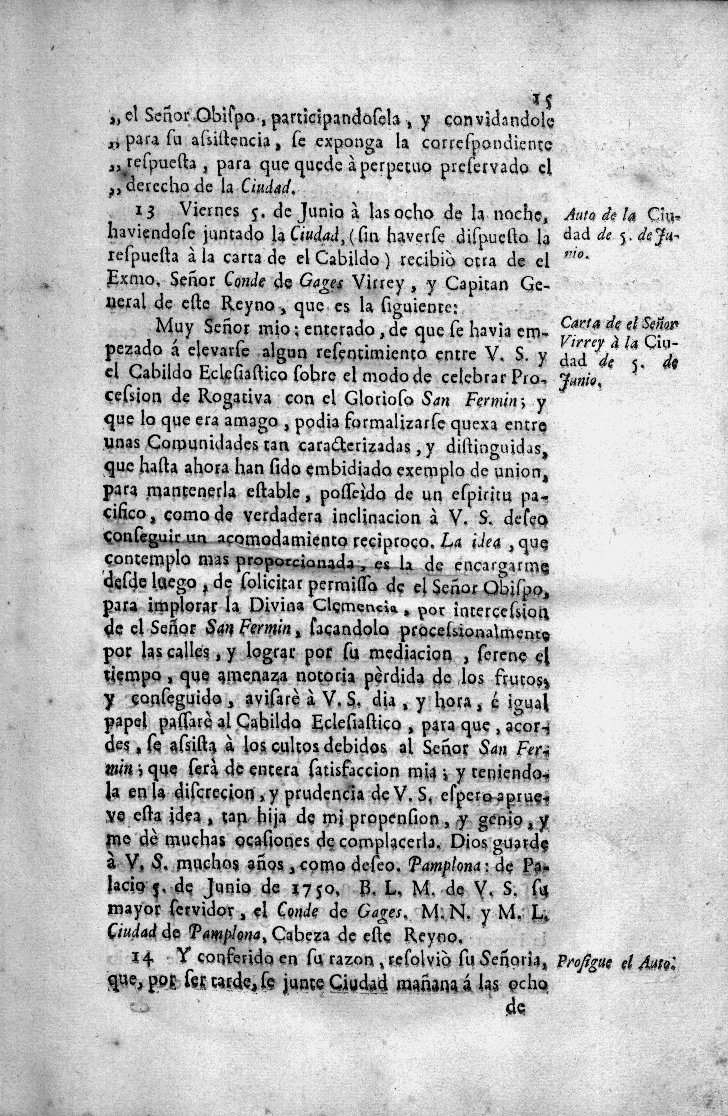 15
,, el Señor Obiſpo, participandoſela, y convidandole
,, para ſu aſsiſtencia, ſe exponga la correſpondiente
,, reſpueſta, para que quede à perpetuo preſervado el
,, derecho de la Ciudad.
13 Viernes 5. de Junio à las ocho de la noche,
haviendoſe juntado la Ciudad, (ſin haverſe diſpueſto la
reſpueſta à la carta de el Cabildo) recibiò otra de el
Exmo. Señor Conde de Gages Virrey, y Capitan Ge-
neral de eſte Reyno, que es la ſiguiente:
Auto de la Ciu-
dad de 5. de Ju-
nio.
Muy Señor mio; enterado, de que ſe havia em-
pezado á elevarſe algun reſentimiento entre V. S. y
el Cabildo Ecleſiaſtico ſobre el modo de celebrar Pro-
ceſsion de Rogativa con el Glorioſo San Fermin; y
que lo que era amago, podia formalizarſe quexa entre
unas Comunidades tan caracterizadas, y diſtinguidas,
que haſta ahora han ſido embidiado exemplo de union,
para mantenerla eſtable, poſſeìdo de un eſpiritu pa-
cifico, como de verdadera inclinacion à V. S. deſeo
conſeguir un acomodamiento reciproco. La idea, que
contemplo mas proporcionada, es la de encargarme
deſde luego, de ſolicitar permiſſo de el Señor Obiſpo,
para implorar la Divina Clemencia, por interceſsion
de el Señor San Fermin, ſacandolo proceſsionalmente
por las calles, y lograr por ſu mediacion, ſerene el
tiempo, que amenaza notoria pèrdida de los frutos,
y conſeguido, aviſarè à V. S. dia, y hora, é igual
papel paſſarè al Cabildo Ecleſiaſtico, para que, acor-
des, ſe aſsiſta à los cultos debidos al Señor San Fer-
min; que ſerà de entera ſatisfaccion mia; y teniendo-
la en la diſcrecion, y prudencia de V. S. eſpero aprue-
ve eſta idea, tan hija de mi propenſion, y genio, y
me dè muchas ocaſiones de complacerla. Dios guarde
à V. S. muchos años, como deſeo. Pamplona: de Pa-
lacio 5. de Junio de 1750. B. L. M. de V. S. ſu
mayor ſervidor, el Conde de Gages. M. N. y M. L.
Ciudad de Pamplona, Cabeza de eſte Reyno.
Carta de el Señor
Virrey à la Ciu-
dad de 5. de
Junio.
14 Y conferido en ſu razon, reſolviò ſu Señoria,
que, por ſer tarde, ſe junte Ciudad mañana á las ocho
Proſigue el Auto.
de